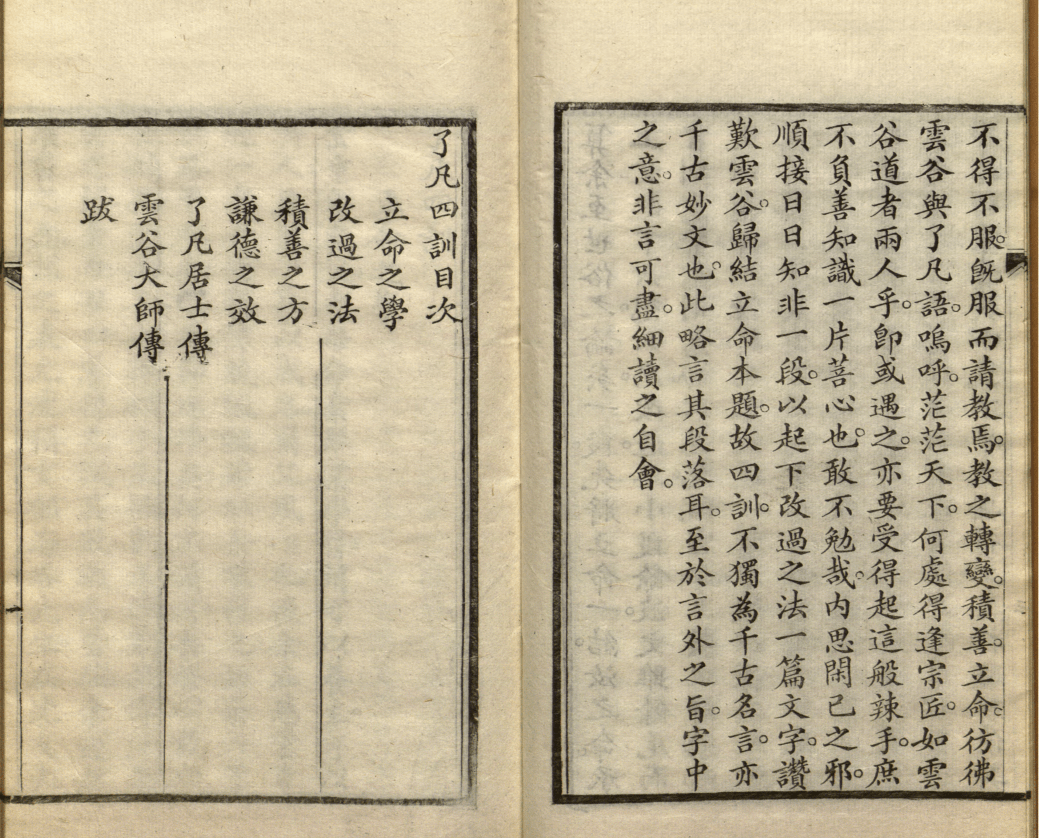 不得不服。既服而請教焉。教之轉變。積善。立命。彷彿
雲谷與了凡語。嗚呼。茫茫天下。何處得逢宗匠。如雲
谷道者兩人乎。卽或遇之。亦要受得起這般辣手。庶
不負善知識一片菩心也。敢不勉哉。內思閑已之邪。
順接日日知非一段。以起下改過之法一篇文字。讚
歎雲谷。歸結立命本題。故四訓。不獨為千古名言。亦
千古妙文也。此略言其段落耳。至於言外之旨。字中
之意。非言可盡。細讀之自會。
了凡四訓目次
立命之學
改過之法
積善之方
謙德之效
了凡居士傳
雲谷大師傳
跋